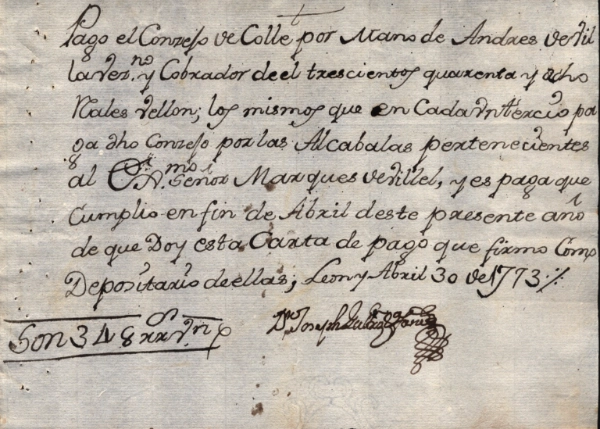 Pago el Conzejo de Colle por Mano de Andres de Vil
la vez.no y Cobrador de el trescientos quarenta y ocho
Rales vellon; los mismos que en Cada un tercio pa
ga dho Conzejo por las Alcabalas pertenecientes
al Señor Marques de Villel, y es paga que
Cumplio en fin de Abril de este presente año
de que Doy esta Carta de pago que firmo Como
Depositario de ellas; Leon y Abril 30 de 1773
Son 348 rr.s v.n
Dn Joseph